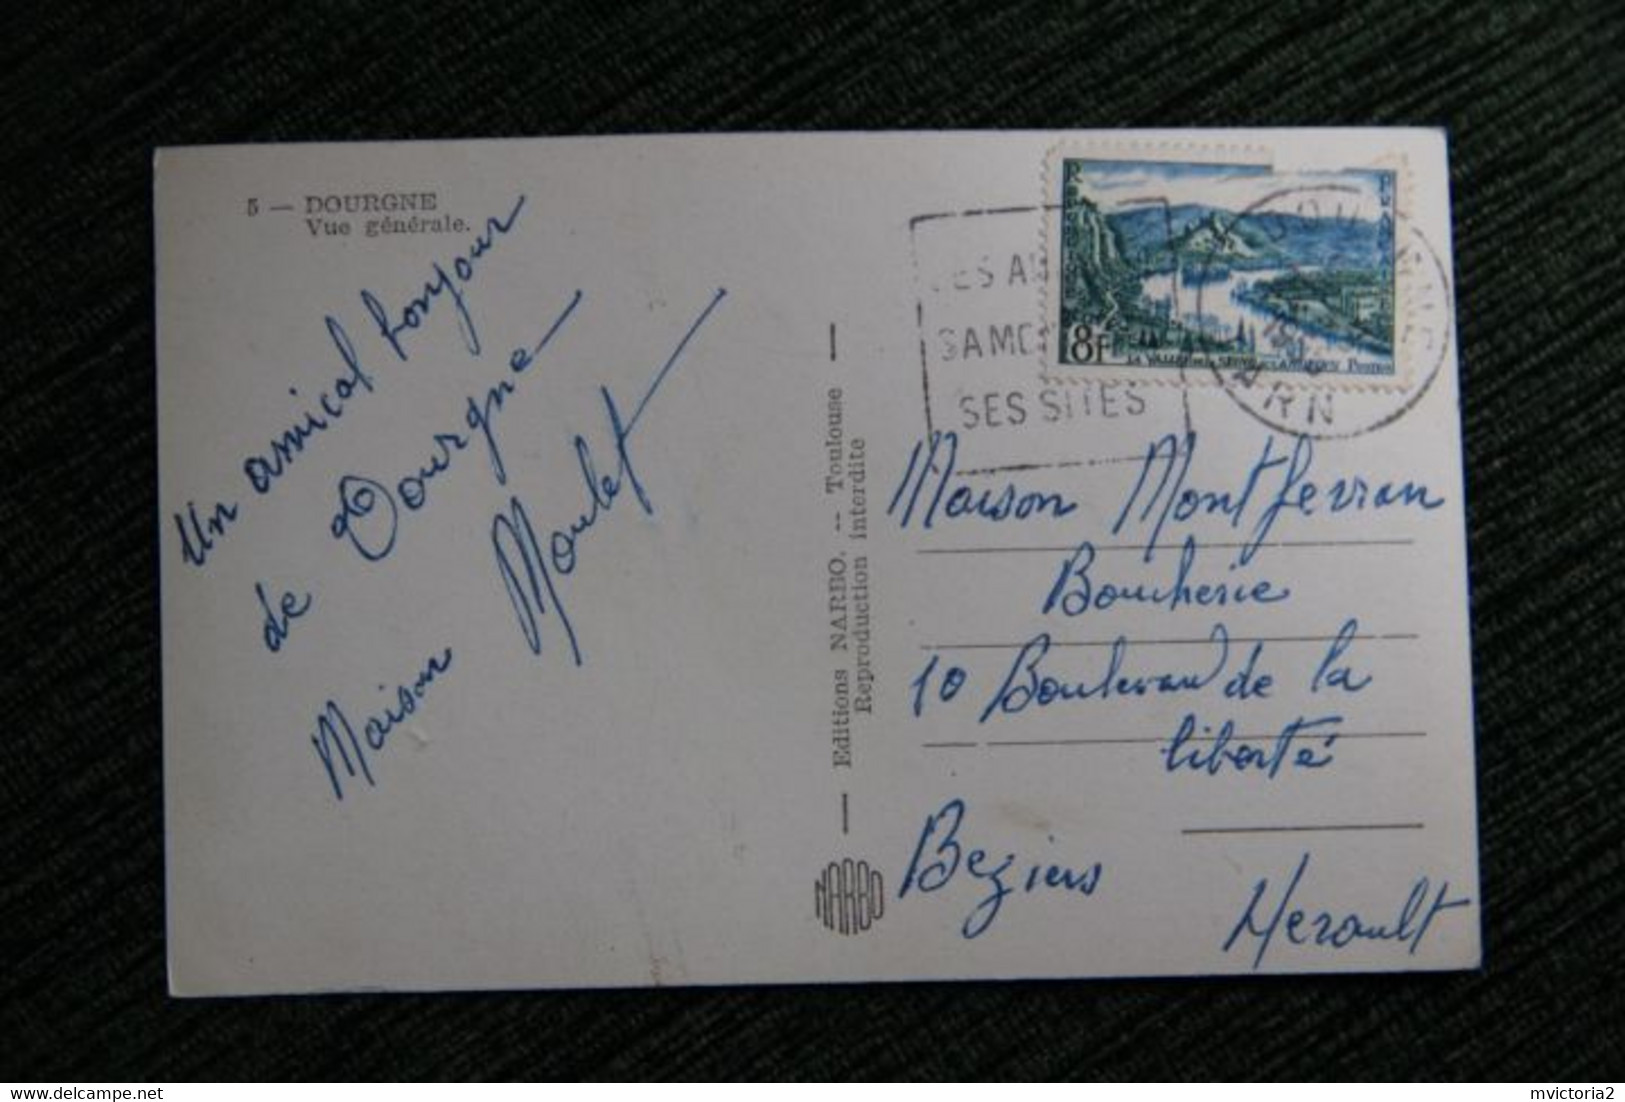 5 — DOURGNE
Vue générale.
Un amical bonjour
de Dourgne
Maison Moulet
Editions NARBO. -- Toulouse
Reproduction interdite
NARBO
SES SITES
TARN
8F
LA VALLÉE DE LA SEINE AUX ANDELYS POSTES
Maison Montferran
Boucherie
10 Boulevard de la
liberté
Beziers
Herault
delcampe.net
mvictoria2